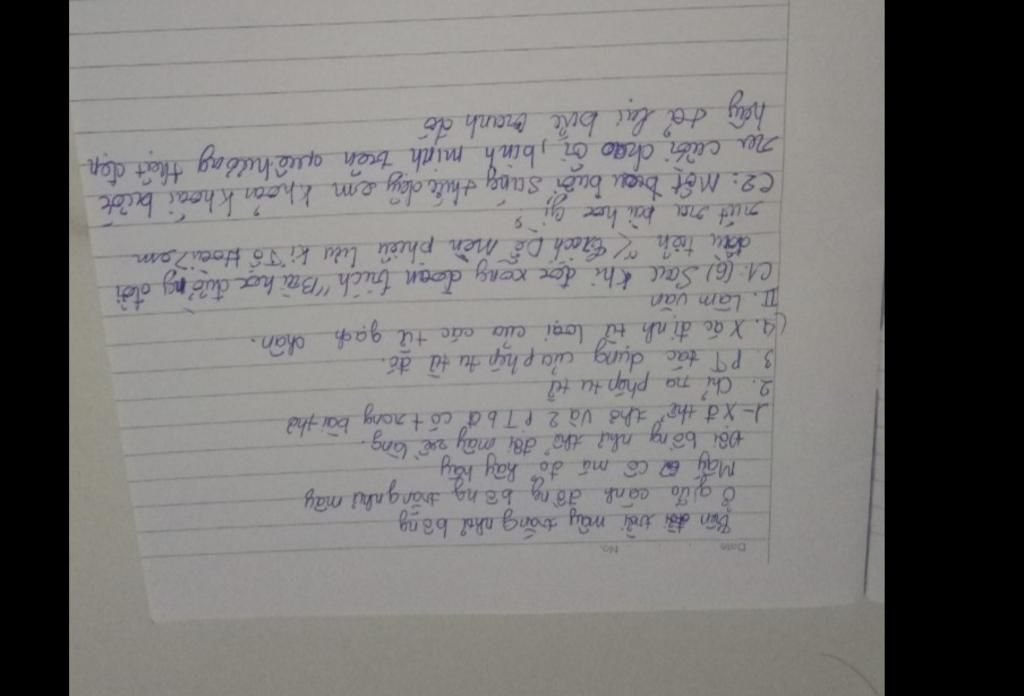 Date No.
Trên trời mây trắng như bông
Ở giữa cánh đồng bông trắng như mây
Mấy cô má đỏ hây hây
Đội bông như thể đội mây về làng.
1- XĐ thể thơ và 2 PTbđ có trong bài thơ
2. Chỉ ra phép tu từ
3. PT tác dụng của phép tu từ đó.
4. Xác định từ loại của các từ gạch chân.
II. Làm văn
C1: (6) Sau khi đọc xong đoạn trích "Bài học đường đời
đầu tiên" < trích Dế Mèn phiêu lưu kí Tô Hoài > em
rút ra bài học gì?
C2: Một buổi sáng thức dậy em khoan khoái bước
ra cười chào ơi, bình minh trên quê hương thật đẹp
hãy tả lại bức tranh đó